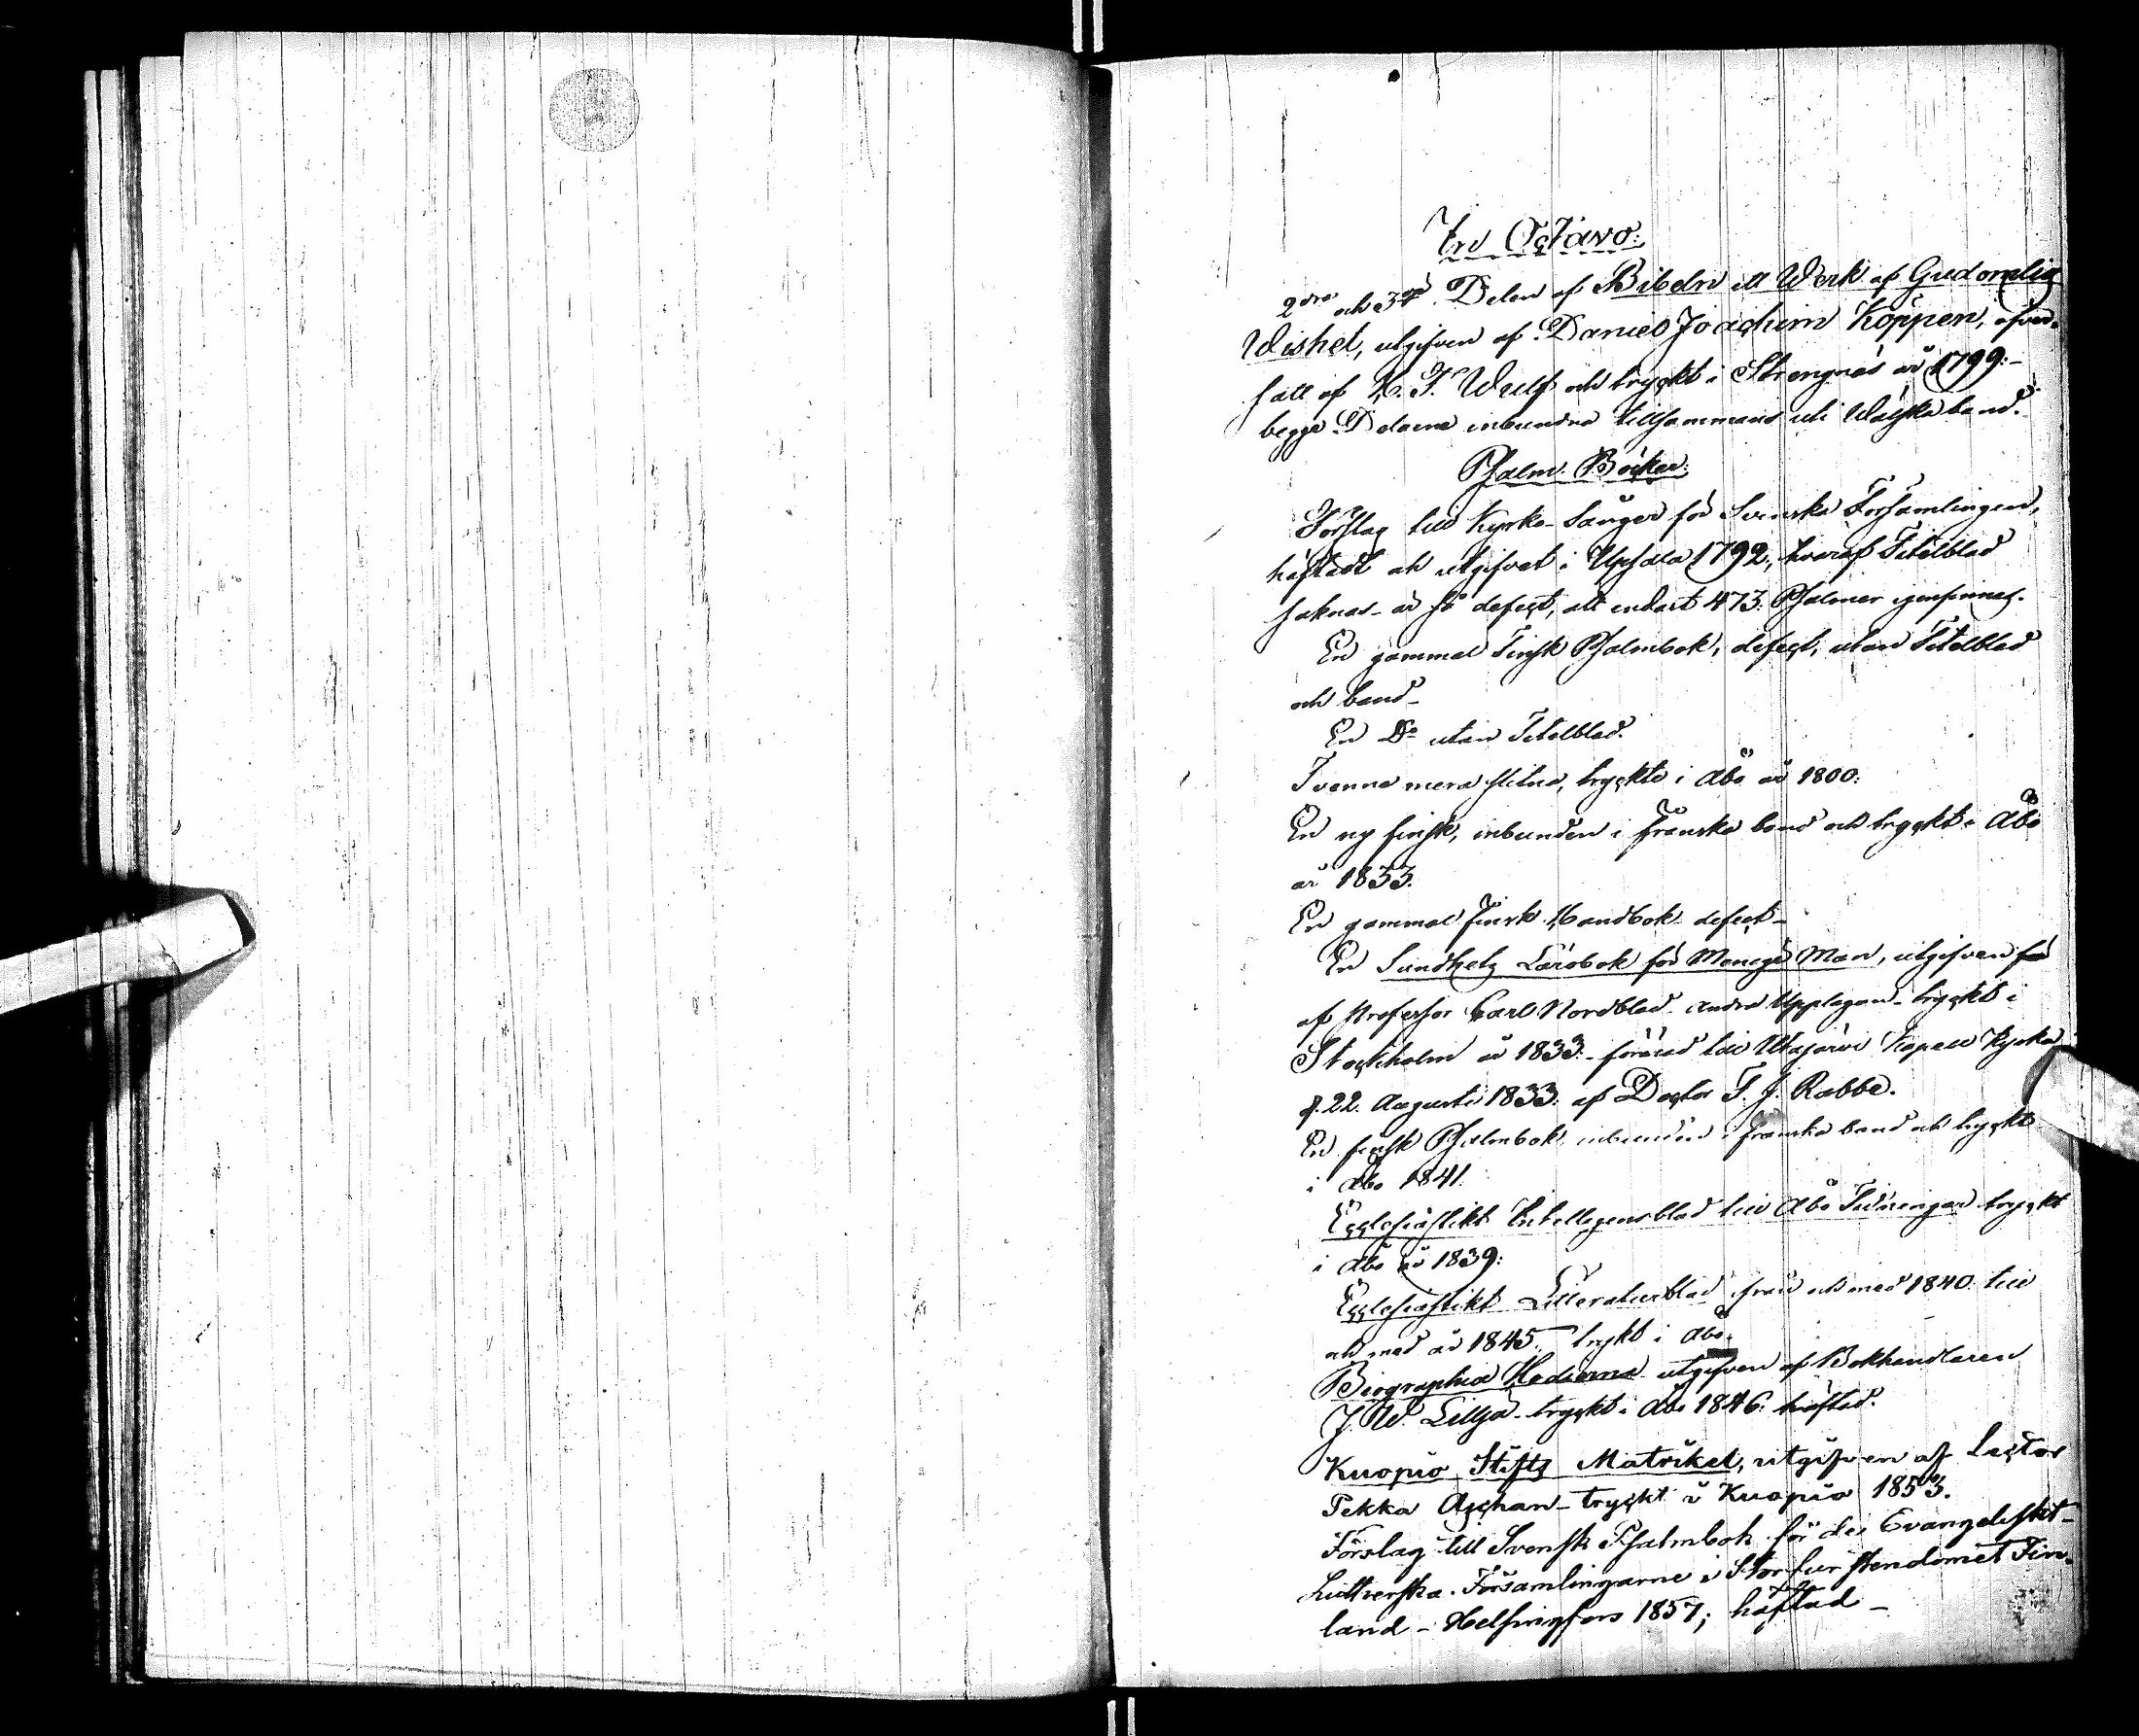 In Octavo:
2dra och 3dje Delen af Bibeln ett Werk af Gudomlig
Wishet, utgifven af Daniel Joachim Köppen, öfver-
satt af K. F. Wulf och tryckt i Strengnäs år 1799:-
begge Delarne inbundna tillsammans uti Wälska band.
Psalm Böcker:
Förslag till Kyrko-Sånger för Svenska Församlingen,
häftadt och utgifvet i Upsala 1792, hvaraf Titelblad
saknas - är så defect, att endast 473: Psalmer igenfinnes.
En gammal Finsk Psalmbok, defect, utan Titelblad
och band -
En Do utan Titelblad.
Tvenne mera slitna, tryckte i Åbo år 1800:
En ny finsk, inbunden i franska band och tryckt i Åbo
år 1833.
En gammal finsk Handbok defect -
En Sundhets Lärobok för Menige Man, utgifven
af Professor Carl Nordblad andra Upplagan - tryckt i
Stockholm år 1833: - förärad till Utajärvi Kapell Kyrka
d. 22. Augusti 1833: af Doctor F. J. Rabbe.
En finsk Psalmbok inbunden i franska band och tryckt
i Åbo 1841:
Ecclesiastikt Intelligensblad till Åbo Tidningar tryckt
i Åbo år 1839:
Ecclesiastikt Litteraturblad ifrån och med 1840 till
och med år 1845 - tryckt i Åbo.
Biographia Hodierna utgifven af Bokhandlaren
J. W. Lillja - tryckt i Åbo 1846: häftad.
Kuopio Stifts Matrikel, utgifven af Lector
Pekka Aschan - tryckt i Kuopio 1853.
Förslag till Svensk Psalmbok för de Evangeliskt-
Lutherska Församlingarne i Storfurstendömet Fin-
land - Helsingfors 1857; häftad -